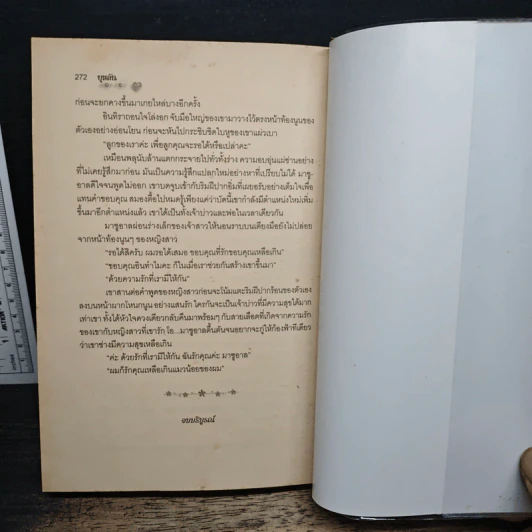 272 บุหลัน
ก่อนจะยกคางขึ้นมาเกยไหล่บางอีกครั้ง
อินทิราถอนใจโล่งอก จับมือใหญ่ของเขามาวางไว้ตรงหน้าท้องนูนของ
ตัวเองอย่างอ่อนโยน ก่อนจะหันไปกระซิบชิดใบหูของเขาแผ่วเบา
“ลูกของเราค่ะ เพื่อลูกคุณจะรอได้หรือเปล่าคะ”
เหมือนพลุนับล้านแตกกระจายไปทั่วทั้งร่าง ความอบอุ่นแผ่ซ่านอย่าง
ที่ไม่เคยรู้สึกมาก่อน มันเป็นความรู้สึกแปลกใหม่อย่างหาที่เปรียบไม่ได้ มาซู
อาลดีใจจนพูดไม่ออก เขาบดจูบเข้ากับริมฝีปากอิ่มที่เผยอรับอย่างเต็มใจเพื่อ
แทนคำขอบคุณ สมองตื้อไปหมดรู้เพียงแค่ว่าบัดนี้เขากำลังมีตำแหน่งใหม่เพิ่ม
ขึ้นมาอีกตำแหน่งแล้ว เขาได้เป็นทั้งเจ้าบ่าวและพ่อในเวลาเดียวกัน
มาซูอาลผ่อนร่างเล็กของเจ้าสาวให้นอนราบบนเตียงมือยังไม่ปล่อย
จากหน้าท้องนูนๆ ของหญิงสาว
“รอได้สิครับ ผมรอได้เสมอ ขอบคุณที่รักขอบคุณเหลือเกิน”
“ขอบคุณอินทำไมคะ ก็ในเมื่อเราช่วยกันสร้างเขาขึ้นมา”
“ด้วยความรักที่เรามีให้กัน”
เขาสานต่อคำพูดของหญิงสาวก่อนจะโน้มแตะริมฝีปากร้อนของตัวเอง
ลงบนหน้าผากโหนกนูน อย่างแสนรัก ใครกันจะเป็นเจ้าบ่าวที่มีความสุขได้มาก
เท่าเขา ทั้งได้หัวใจดวงเดียวกลับคืนมาพร้อมๆ กับสายเลือดที่เกิดจากความรัก
ของเขากับหญิงสาวที่เขารัก โอ...มาซูอาลตื้นตันจนอยากจะกู่ให้ก้องฟ้าทีเดียว
ว่าเขาช่างมีความสุขเหลือเกิน
“ค่ะ ด้วยรักที่เรามีให้กัน ฉันรักคุณค่ะ มาซูอาล”
“ผมก็รักคุณเหลือเกินแมวน้อยของผม”
จบบริบูรณ์